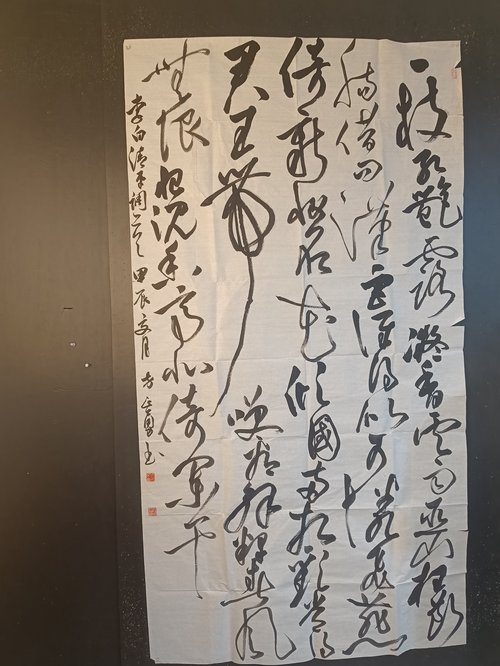 一枝紅艷露凝香雲雨巫山枉斷
腸借問漢宮誰得似可憐飛燕
倚新妝名花傾國兩相歡常得
君王帶笑看解釋春風
無限恨沉香亭北倚闌干
李白清平調 甲辰 月